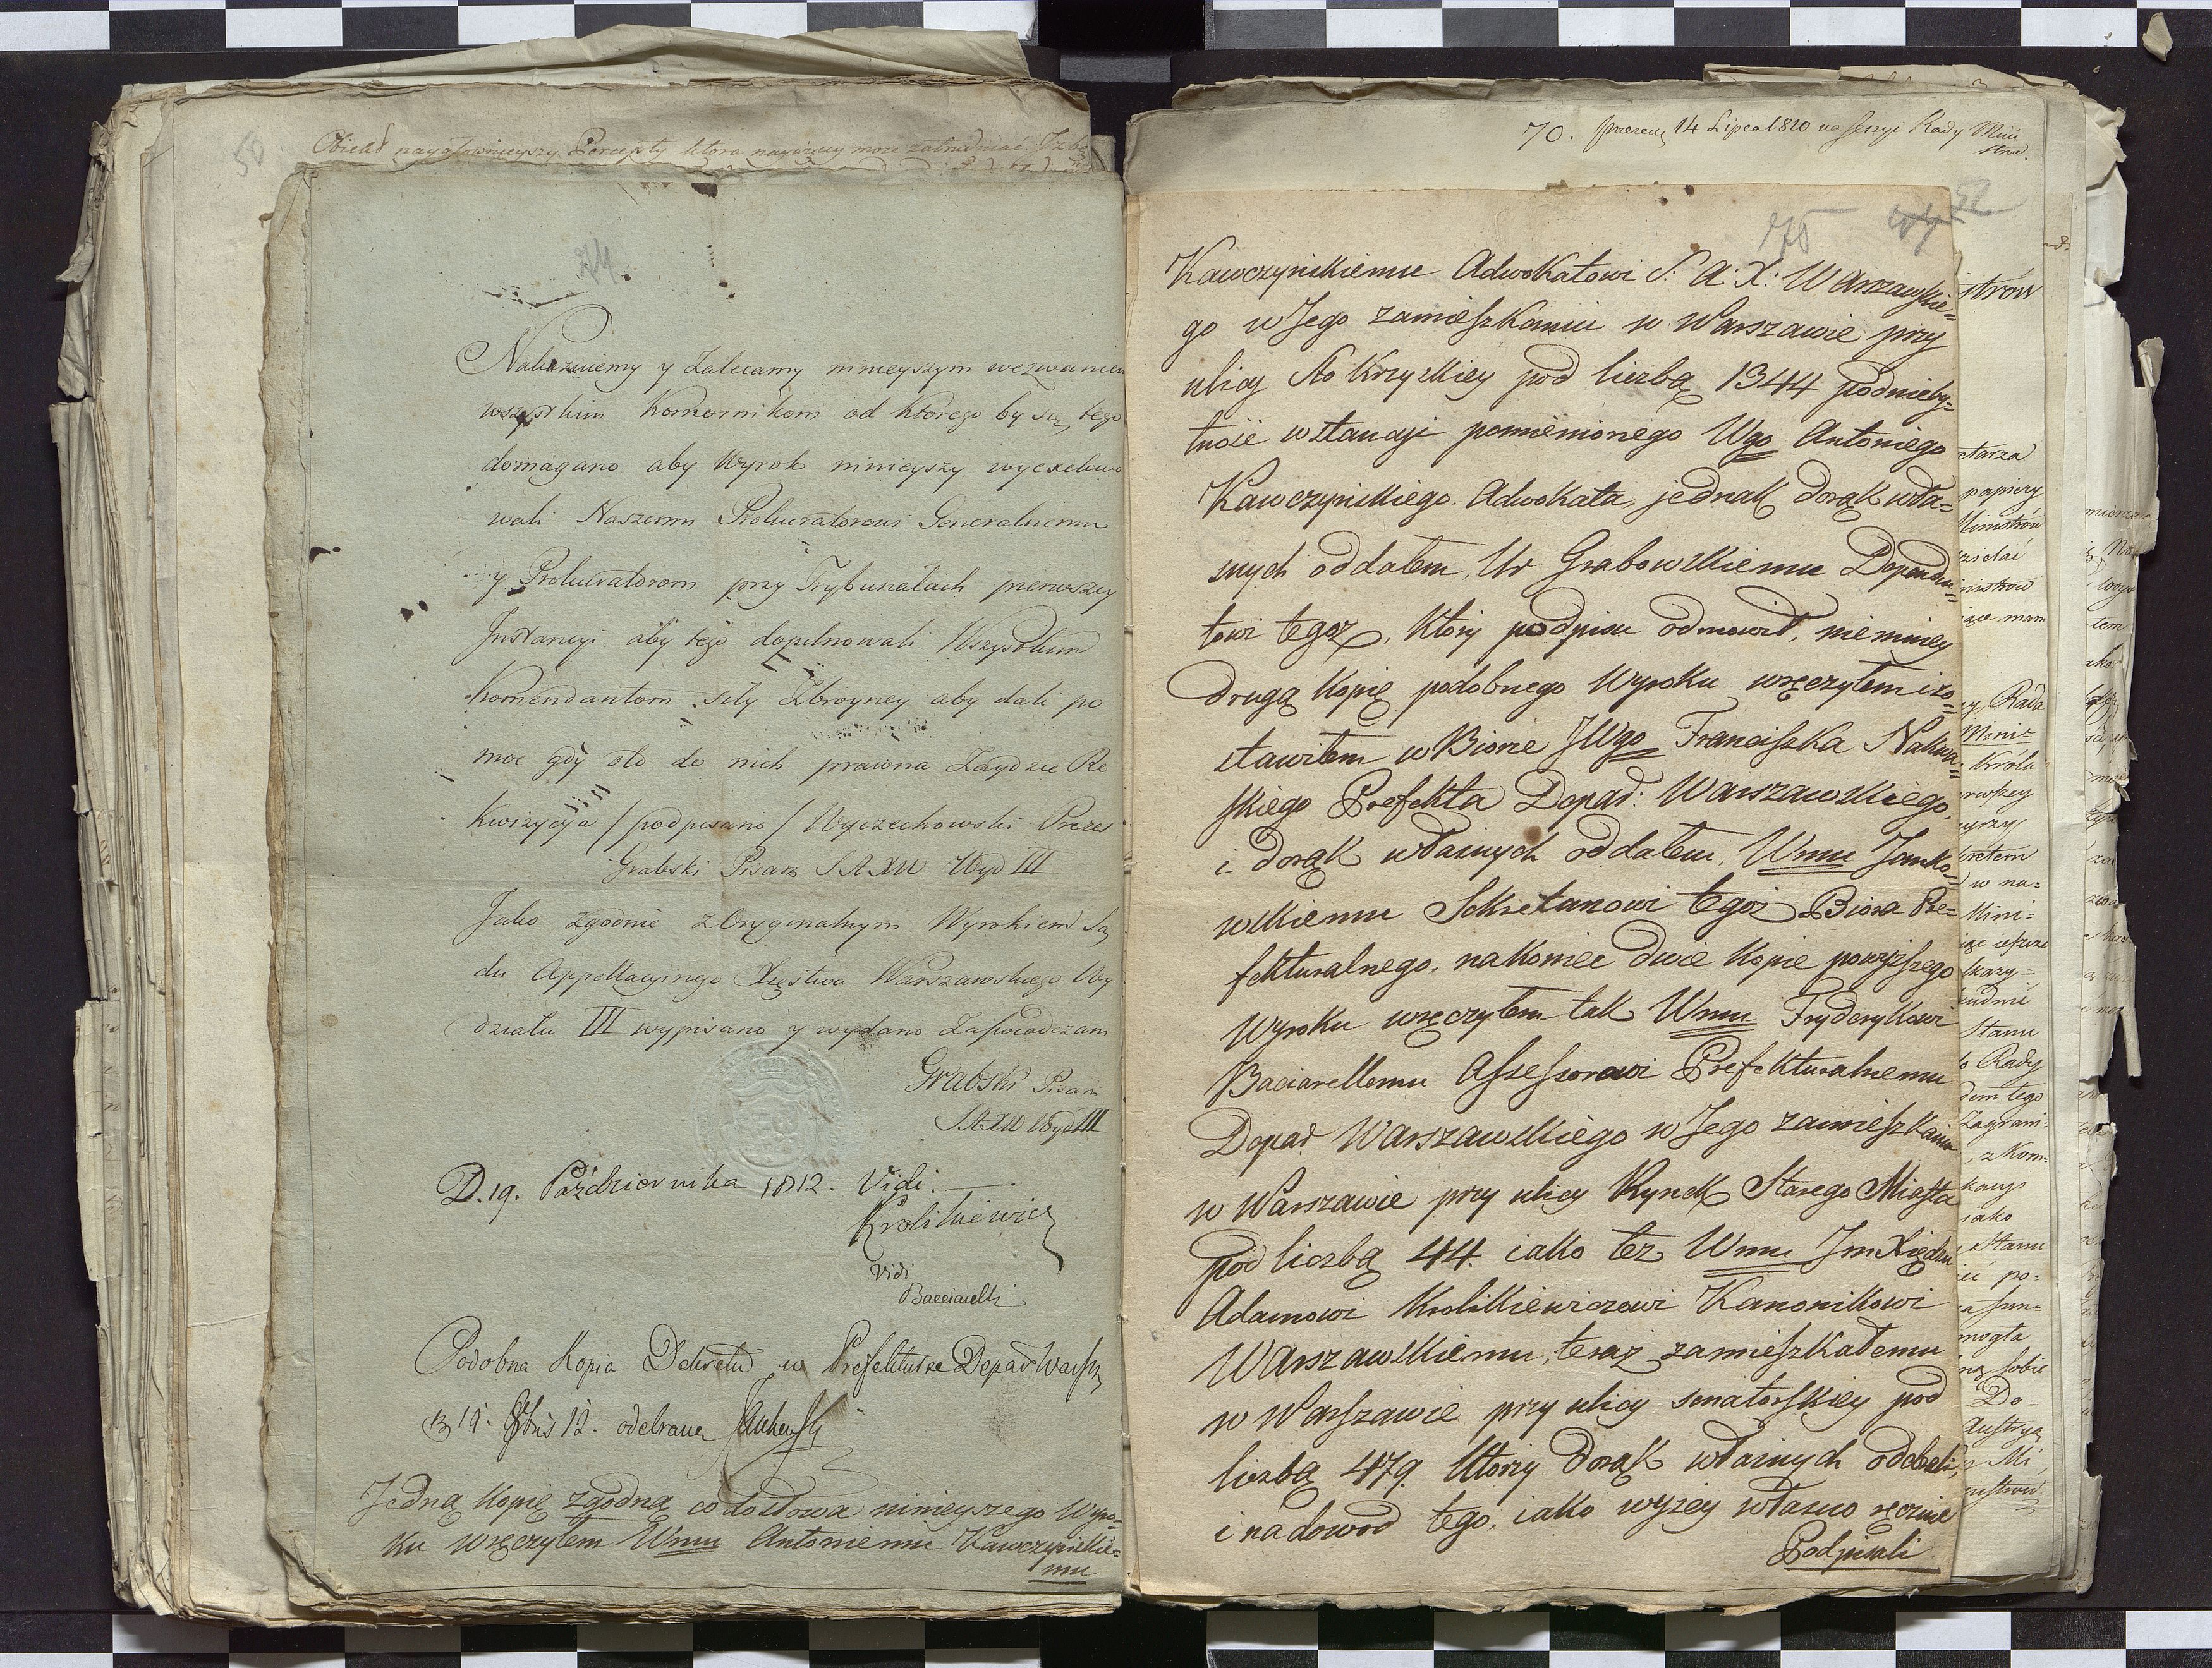 50
Obiekt naygłownieyszy Percepty ktora nayiaciey może zatrudniac Izbę
74.
Nakazuiemy y Zalecamy ninieyszym wezwaniem
wszystkim Komornikom od ktorego by się tego
domagano aby Wyrok ninieyszy wyexekwo
wali Naszemu Prokuratorowi Generalnemu
y Prokuratorom przy Trybunałach pierwszey
Instancyi aby tego dopilnowali Wszystkim
Komendantom siły Zbroyney aby dali po
moc gdy sto do nich prawna Zaydzie Re
kwizycyja / podpisano / Woyciechowski Prezes
Grabski Pisarz S A XW Wyd III
Jako zgodnie z Oryginalnym Wyrokiem Są
du Appellacyinego Xięstwa Warszawskiego Wy
działu III wypisano y wydano Zaswiadczam
Grabski Pisarz
S A XW Wyd III
D. 19. Października 1812. Vidi.
Krolikiewicz
Vidi
Bacciarelli
Podobna Kopia Dekretu w Prefekturze Depart Warsz
D 19. 8bris 12. odebrana Jankowski
Jedną Kopię zgodną co do słowa ninieyszego Wyro=
ku wręczyłem Wmu Antoniemu Kawczyńskie=
mu
70. prezen. 14 Lipca 1810 na sessyi Rady Mini
strów.
175 52
Kawczyńskiemu Adwokatowi S: A: X: Warszawskie=
go w Jego zamieszkaniu w Warszawie przy
ulicy Sto Krzyzkiey pod liczbą 1344 podnieby=
tność w stancyi pomienionego Wgo Antoniego
Kawczyńskiego Adwokata, jednak do rąk wła=
snych oddałem, Ur Grabowskiemu Dependen=
towi tegoz, ktory podpisu odmowił, nie mniey
drugą Kopię podobnego Wyroku wręczyłem i zo=
stawiłem w Biorze JWgo Franciszka Nakwa=
skiego Prefekta Depar: Warszawskiego,
i do rąk własnych oddałem, Wmu Janko=
wskiemu Sekretarzowi tegoż Biora Pre=
fekturalnego, nakoniec dwie Kopie powyższego
Wyroku wręczyłem tak Wmu Fryderykowi
Baciarellemu Assessorowi Prefekturalnemu
Depar Warszawskiego w Jego zamieszkaniu
w Warszawie przy ulicy Rynek Starego Miasta
pod liczbą 44. iako tez Wmu Jm Xiędzu
Adamowi Krolikiewiczowi Kanonikowi
Warszawskiemu, teraz zamieszkałemu
w Warszawie przy ulicy senatorskiey pod
liczbą 479. którzy do rąk własnych odebrali,
i na dowod tego, iako wyzey własno ręcznie
Podpisali